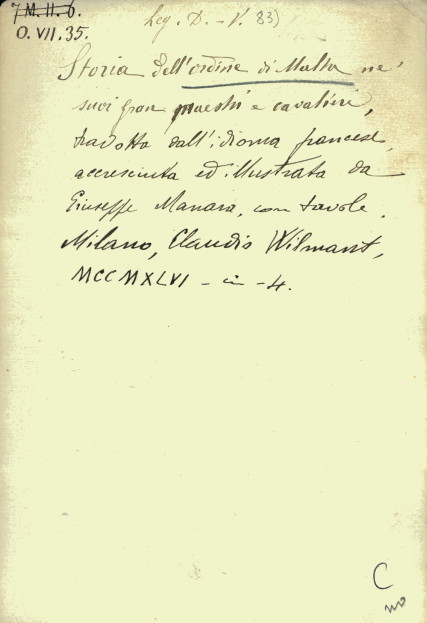 7 M. II. 6.
O. VII. 35.
Leg. D. - V. 83)
Storia dell'ordine di Malta ne'
suoi gran maestri e cavalieri,
tradotta dall'idioma francese,
accresciuta ed illustrata da
Giuseppe Manara, con tavole.
Milano, Claudio Wilmant,
MCCMXLVI - in - 4.
C
no